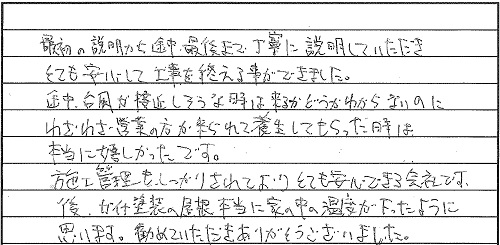 最初の説明から途中、最後まで丁寧に説明していただき
とても安心して工事を終える事ができました。
途中、台風が接近しそうな時は来るかどうかわからないのに
わざわざ営業の方が来られて養生してもらった時は
本当に嬉しかったです。
施工管理もしっかりされており とても安心できる会社です。
後、ガイナ塗装の屋根 本当に家の中の温度が下ったように
思います。勧めていただきありがとうございました。